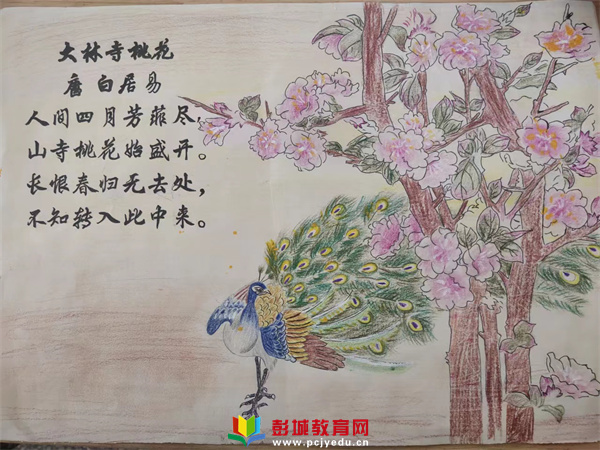 大林寺桃花
唐 白居易
人间四月芳菲尽,
山寺桃花始盛开。
长恨春归无去处,
不知转入此中来。
彭城教育网
www.pcjyedu.cn